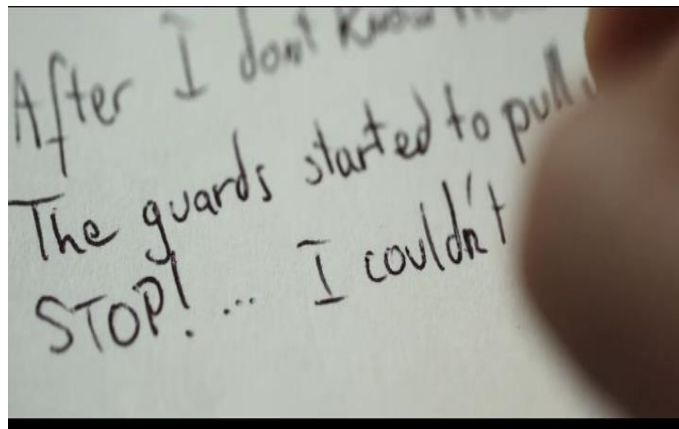 After I don't know
The guards started to pull
STOP! ... I couldn't